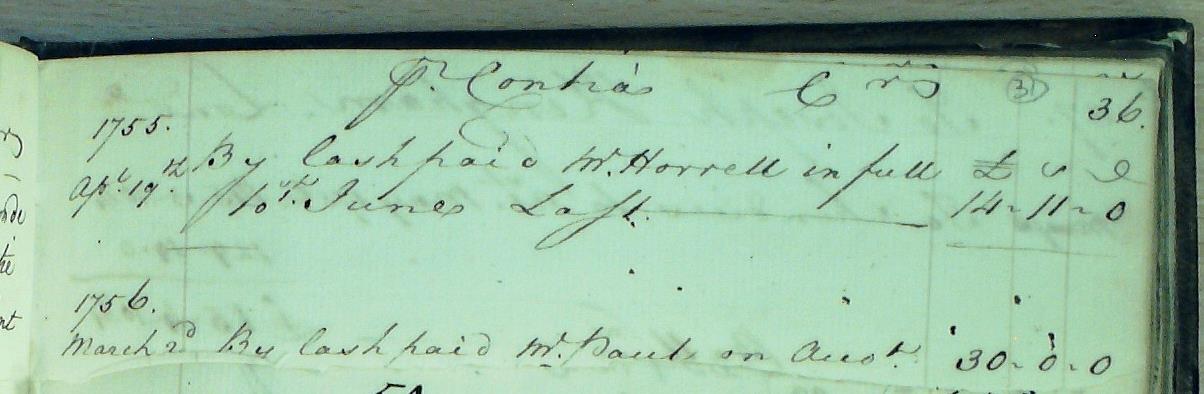 Pr. Contra Crs 31 36.
1755.
Apl. 19th By Cash paid Mr. Horrell in full £ s d
to Junes Last. 14 - 11 - 0
1756.
March 2d By Cash paid Mr. Paul on Accot. 30 - 0 - 0